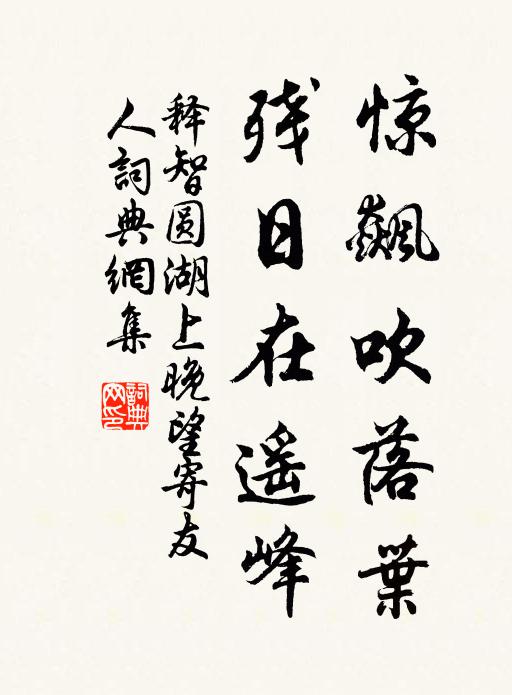 惊飙吹落葉
残日在遥峰
释智圆湖上晚望寄友
人詞典網集
詞典网印